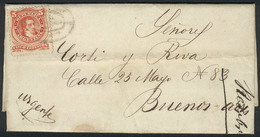 Señores
Corti y Riva
Calle 25 Mayo Nº 83
Buenos-
Urgente